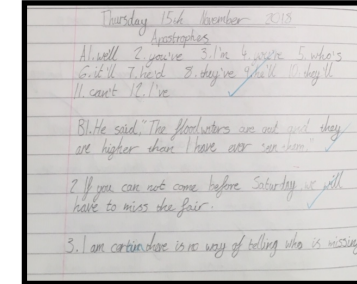 Thursday 15th November 2018
Apostrophes
A1. we'll 2. you've 3. I'm 4. you're 5. who's
6. it'll 7. he'd 8. they've 9. he'll 10. they'll
11. can't 12. I've
B1. He said, "The flood waters are out and they
are higher than I have ever seen them."
2 If you can not come before Saturday we will
have to miss the fair.
3. I am certain there is no way of telling who is missing